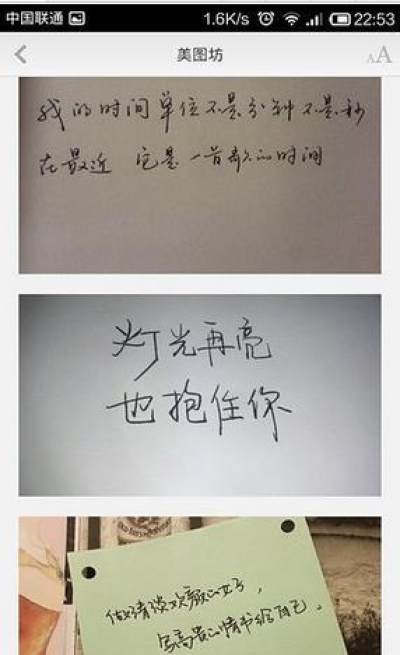 中国联通 1.6K/s 22:53
美图坊 AA
我的时间单位不是分钟不是秒
在最近 它是一首歌的时间
灯光再亮
也抱住你
做清淡欢颜的女子，
写高贵的情书给自己。